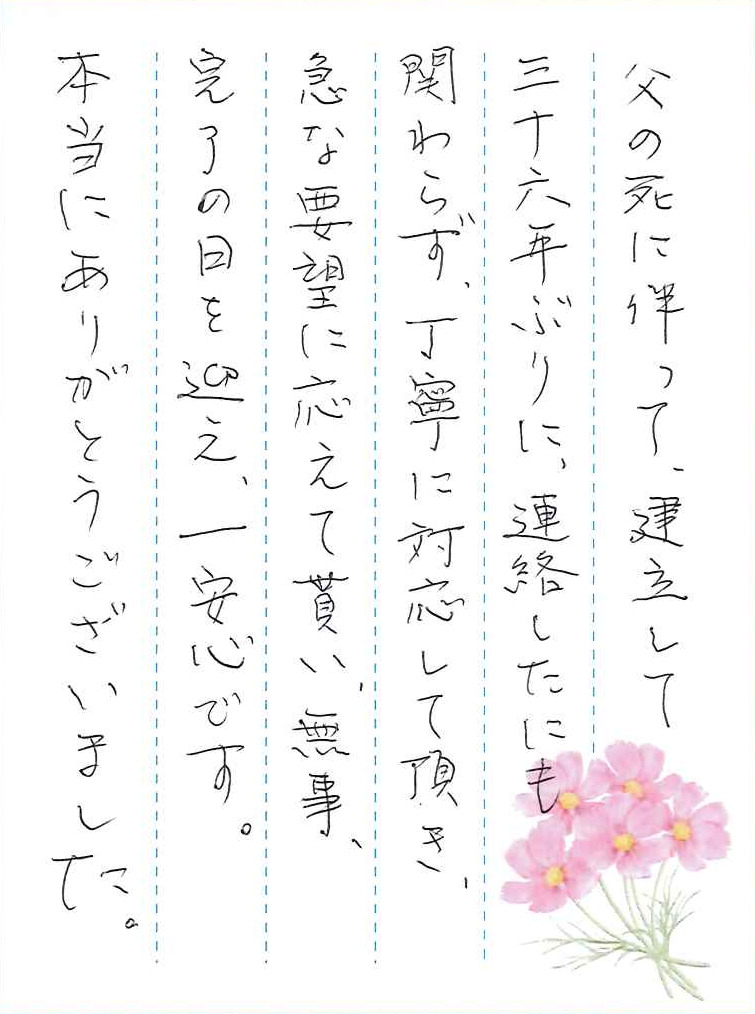 父の死に伴って、建立して
三十六年ぶりに、連絡したにも
関わらず、丁寧に対応して頂き、
急な要望に応えて貰い、無事、
完了の日を迎え、一安心です。
本当にありがとうございました。